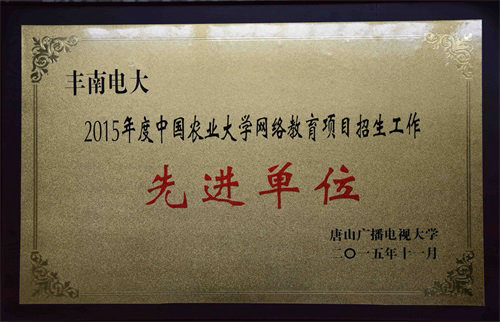 丰南电大
2015年度中国农业大学网络教育项目招生工作
先进单位
唐山广播电视大学
二〇一五年十一月